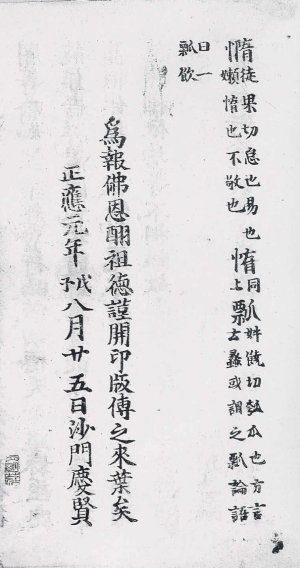 惰徒果切怠也易也
嬾惰也不敬也
惰同上
瓢妣遙切瓠也方言
蠡或謂之瓢論語
曰一
瓢飲
爲報佛恩酬祖德謹開印版傳之來葉矣
正應元年戊子八月廿五日沙門慶賢